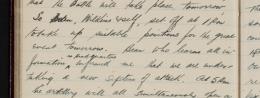 had the Battle will take place tomorrow
So Eden, Wilkins & self, set off at 1 P.M.
to take up suitable positions for the great
event tomorrow. Dean who hears all in-
formation, informed me that we are under-
taking a new system of attack. At 5 Am
the artillery will all simultaneously open a